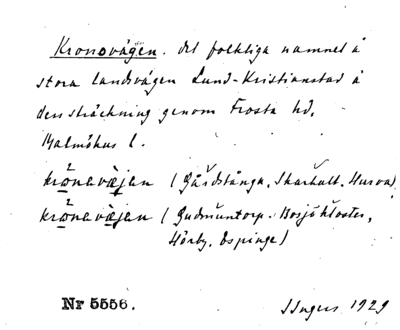 Kronovägen. det folkliga namnet å
stora landsvägen Lund-Kristianstad å
dess sträckning genom Frosta hd,
Malmöhus l.
krònavæjan (Gårdstånga, Skarhult, Hurva)
krònavæjan (Gudmuntorp, Bosjökloster,
Hörby, Espinge)
Nr 5556. Ingers 1929